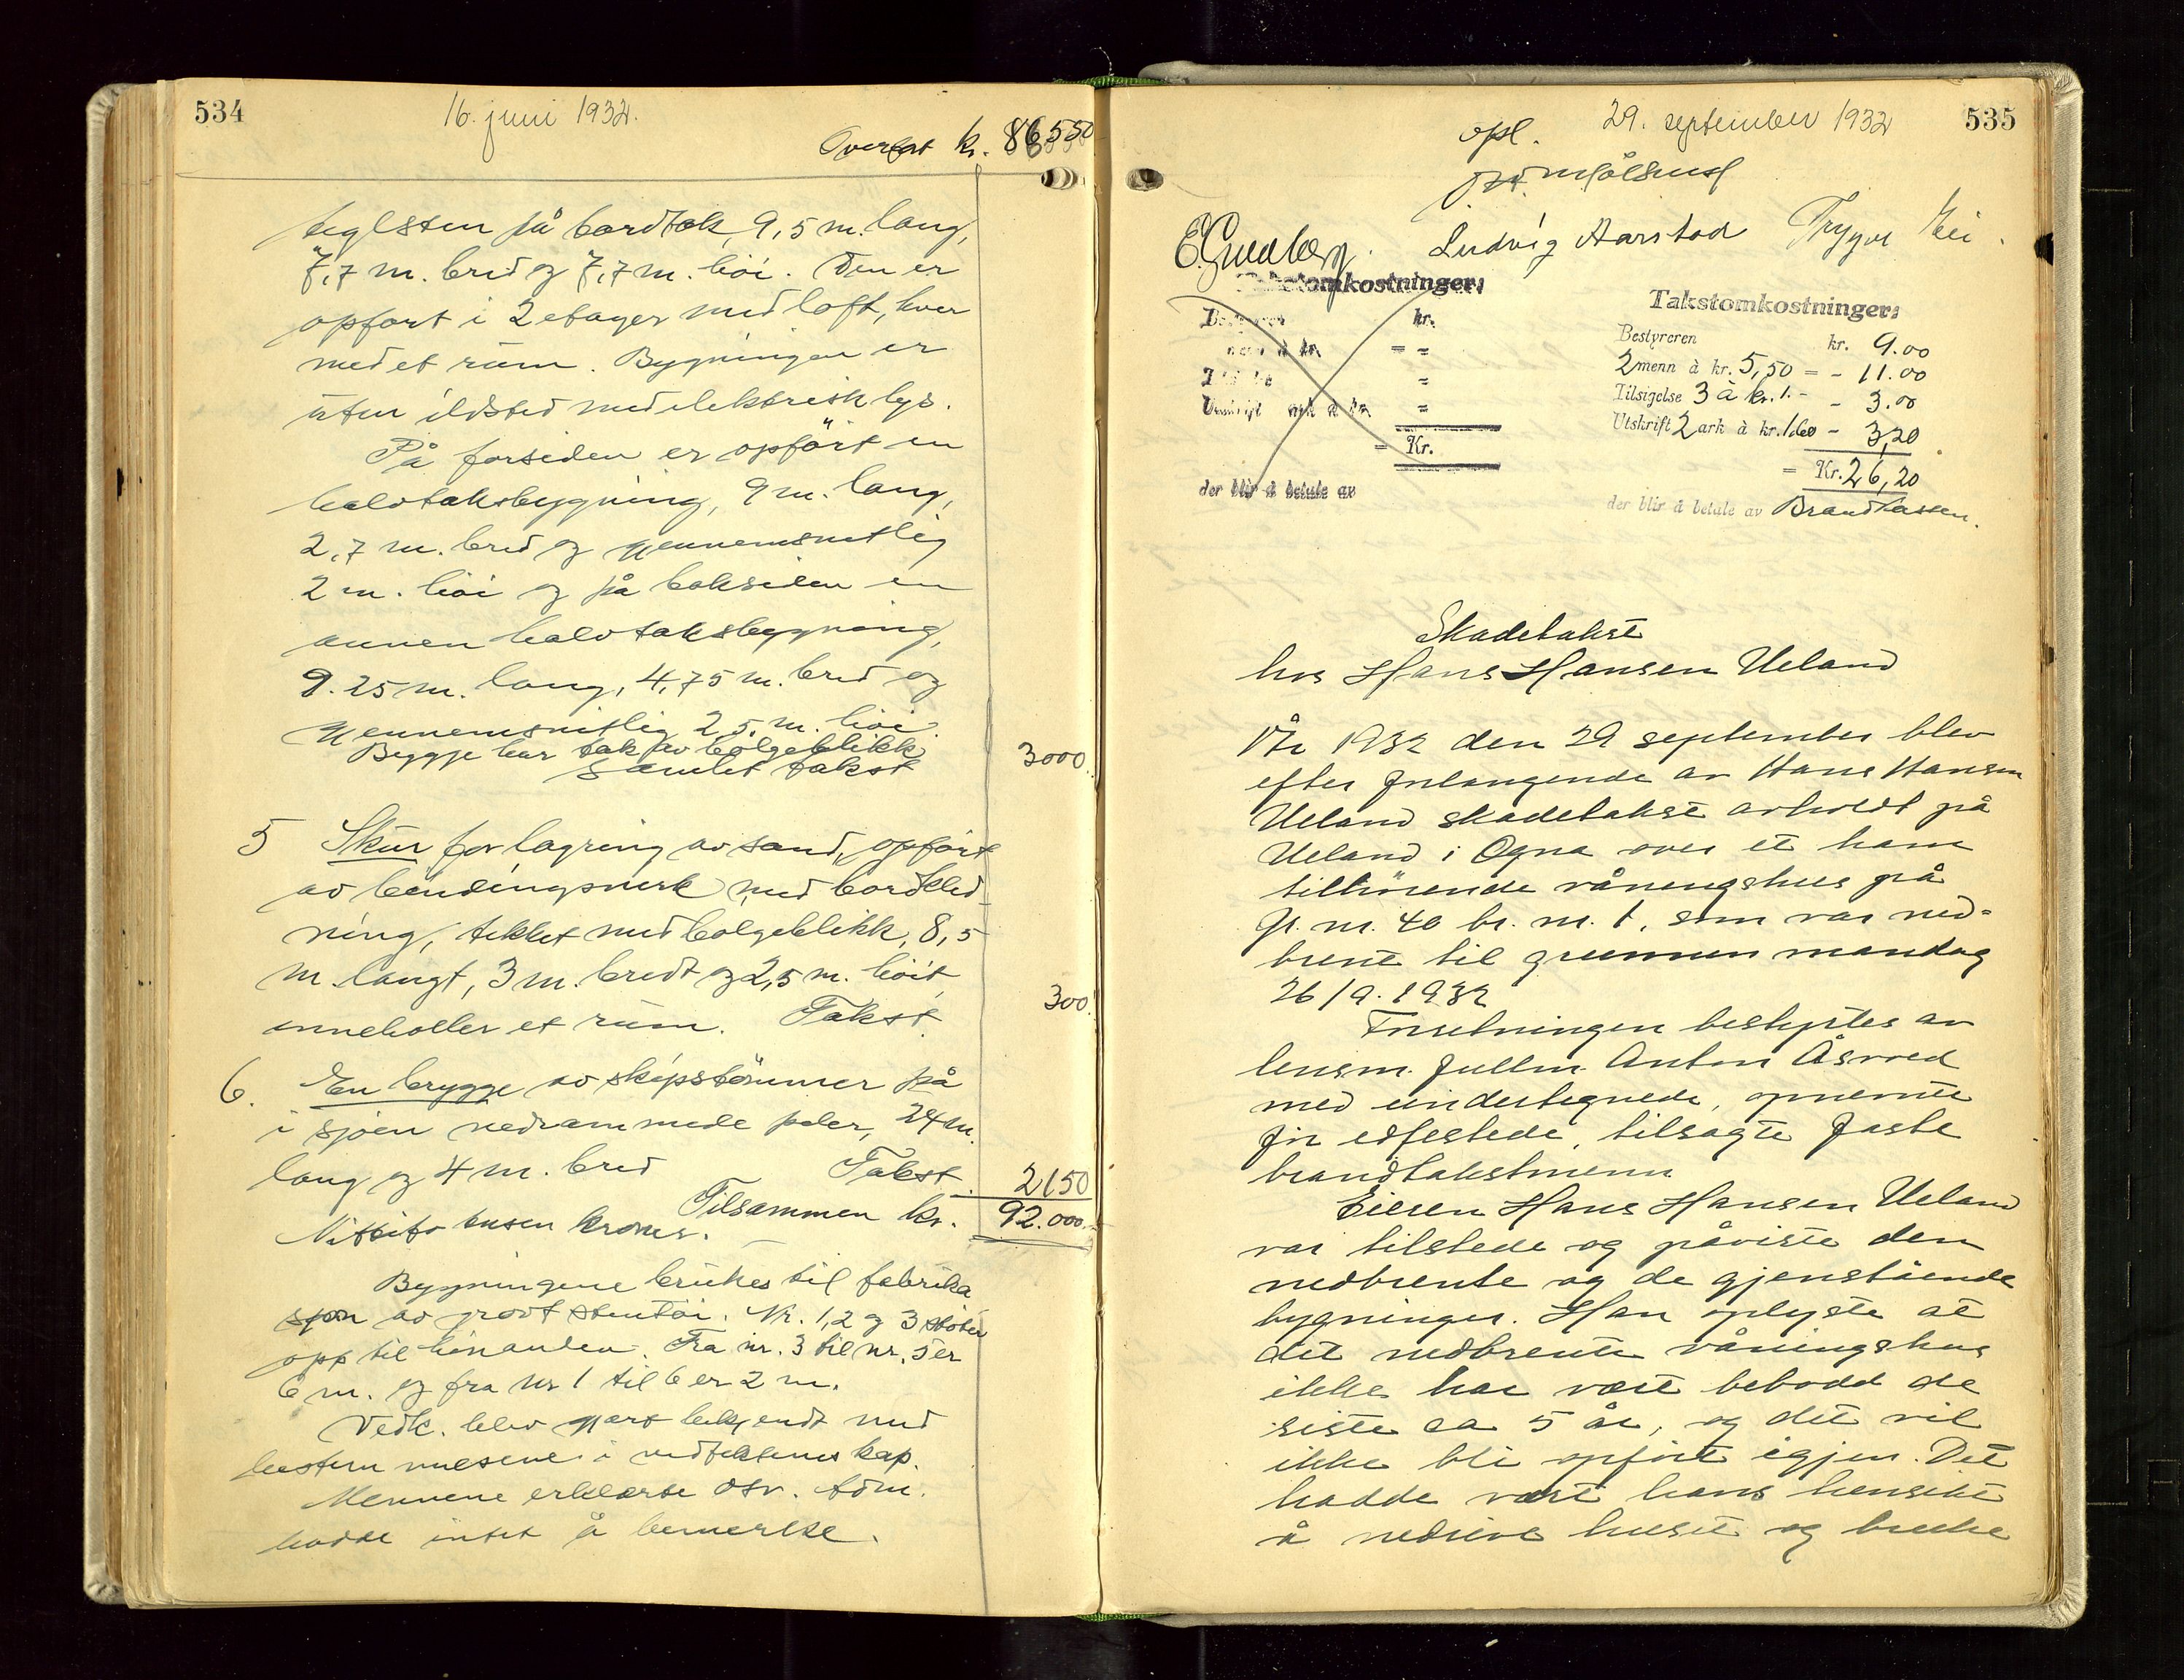 534
16. juni 1932.
Overført kr. 86550
teglsten på bordtak, 9,5 m. lang,
7,7 m. bred og 7,7 m. höi. Den er
opført i 2 etager med loft, hver
med et rüm. Bygningen er
uten ildsted med elektrisk lys.
På forsiden er opført en
halvtaksbygning, 9 m. lang,
2,7 m. bred og gjennemsnitlig
2 m. höi og på baksiden en
annen halvtaksbygning,
9.25 m. lang, 4,75 m. bred og
gjennemsnitlig 2,5. m. höi.
Begge har tak av bølgeblikk
Samlet takst
3000.
5 Skur for lagring av sand, opført
av bindingsverk med bordkled-
ning, tekket med bølgeblikk, 8,5
m. langt, 3 m. bredt og 2,5 m. höit,
inneholler et rüm. Takst.
300.
6. En brygge av skipstömmer på
i sjøen nedrammede peler, 24 m.
lang og 4 m. bred Takst.
2150
Tilsammen kr.
92.000.-
Nittito tusen kroner.
Bygningene brukes til fabrika
sjon av grovt stentöi. Nr. 1, 2 og 3 støter
opp til hinanden. Fra nr. 3 til nr. 5 er
6 m. og fra nr 1 til 6 er 2 m.
Vedk. blev gjort bekjendt med
bestemmelsene i vedtektenes kap.
Mennene erklærte osv.
hadde intet å bemerke.
29. september 1932
535
opl.
E. Gundberg. Ludvig Aarstad Trygve Eie.
Takstomkostninger:
Bestyreren kr.
menn à kr. = -
Utskrift ark à kr. -
= Kr.
der blir å betale av
Takstomkostninger:
Bestyreren kr. 9.00
2 menn à kr. 5,50 = - 11.00
Tilsigelse 3 à kr. 1.- - 3.00
Utskrift 2 ark à kr. 1.60 - 3,20
= Kr. 26,20
der blir å betale av Brandkassen.
Skadetakst
hos Hans Hansen Ueland
År 1932 den 29 september blev
efter forlangende av Hans Hansen
Ueland skadetakst avholdt på
Ueland i Ogna over et ham
tilhörende våningshus på
gr. nr. 40 br. nr. 1, som var ned-
brent til grunnen mandag
26/9. 1932
Forretningen bestyrtes av
lensm. fullm. Anton Åsvoed
med undertegnede, opnevnte
før edfestede, tilsagte faste
brandtakstmenn
Eieren Hans Hansen Ueland
var tilstede og påviste den
nedbrente og de gjenstående
bygninger. Han oplyste at
det nedbrente våningshus
ikke har vært bebodd de
siste ca 5 år, og det vil
ikke bli opført igjen. Det
hadde vært hans hensikt
å nedrive huset og bruke